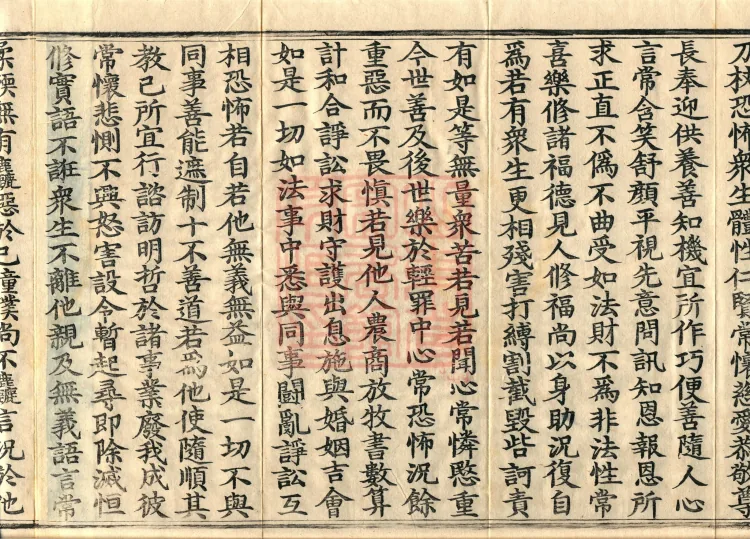 刀杖恐怖衆生體性仁賢常懷慈愛恭敬尊
長奉迎供養善知機宜所作巧便善隨人心
言常含笑舒顔平視先意問訊知恩報恩所
求正直不僞不曲受如法財不爲非法性常
喜樂修諸福德見人修福尚以身助況復自
爲若有衆生更相殘害打縛割截毀呰訶責
有如是等無量衆苦若見若聞心常憐愍重
今世善及後世樂於輕罪中心常恐怖況餘
重惡而不畏慎若見他人農商放牧書數算
計和合諍訟求財守護出息施與婚姻吉會
如是一切如法事中悉與同事鬪亂諍訟互
相恐怖若自若他無義無益如是一切不與
同事善能遮制十不善道若爲他使隨順其
教己所宜行諮訪明哲於諸事業廢我成彼
常懷悲惻不興怒害設令暫起尋即除滅恒
修實語不誑衆生不離他親及無義語言常
柔輭無有麁獷惡於己童僕尚不麁言況於他